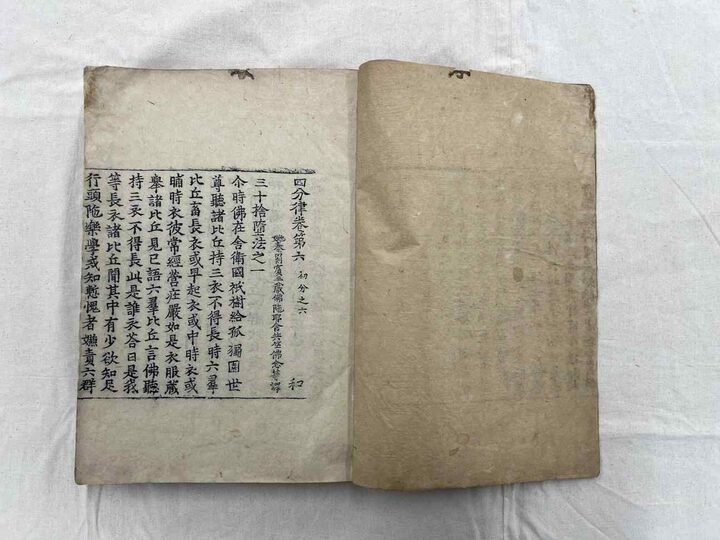 四分律卷第六 初分之六 和
姚秦罽賓三藏佛陁耶舍共竺佛念等譯
三十捨墮法之一
尒時佛在舍衛國祇樹給孤獨園世
尊聽諸比丘持三衣不得長時六羣
比丘畜長衣或早起衣或中時衣或
晡時衣彼常經營莊嚴如是衣服藏
舉諸比丘見已語六羣比丘言佛聽
持三衣不得長此是誰衣荅曰是我
等長衣諸比丘聞其中有少欲知足
行頭陁樂學戒知慙愧者嫌責六群